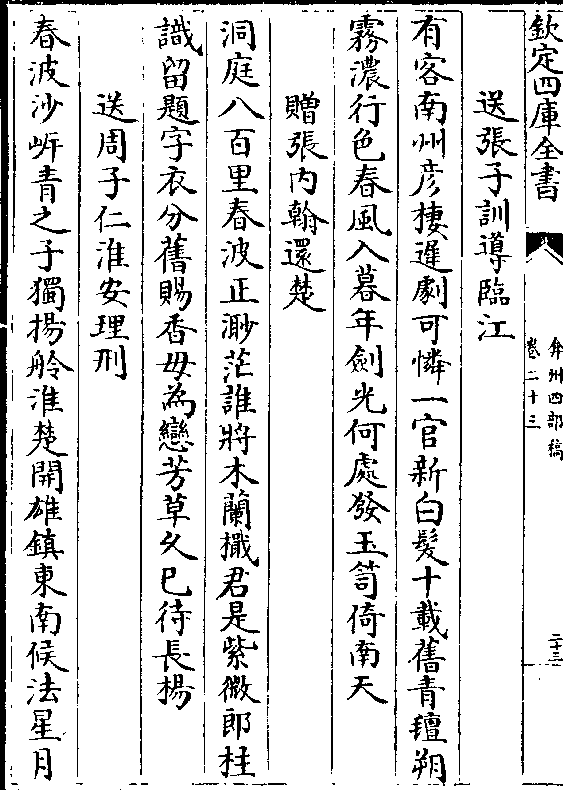 欽定四庫全書
弇州四部稿
卷二十三
二十三
送張子訓導臨江
有客南州彥棲遲劇可憐一官新白髮十載舊青氊朔
霧濃行色春風入暮年劍光何處發玉笥倚南天
贈張内翰還楚
洞庭八百里春波正渺茫誰將木蘭檝君是紫微郎柱
識留題字衣分舊賜香毋為戀芳草久已待長楊
送周子仁淮安理刑
春波沙岸青之子獨揚舲淮楚開雄鎮東南候法星月